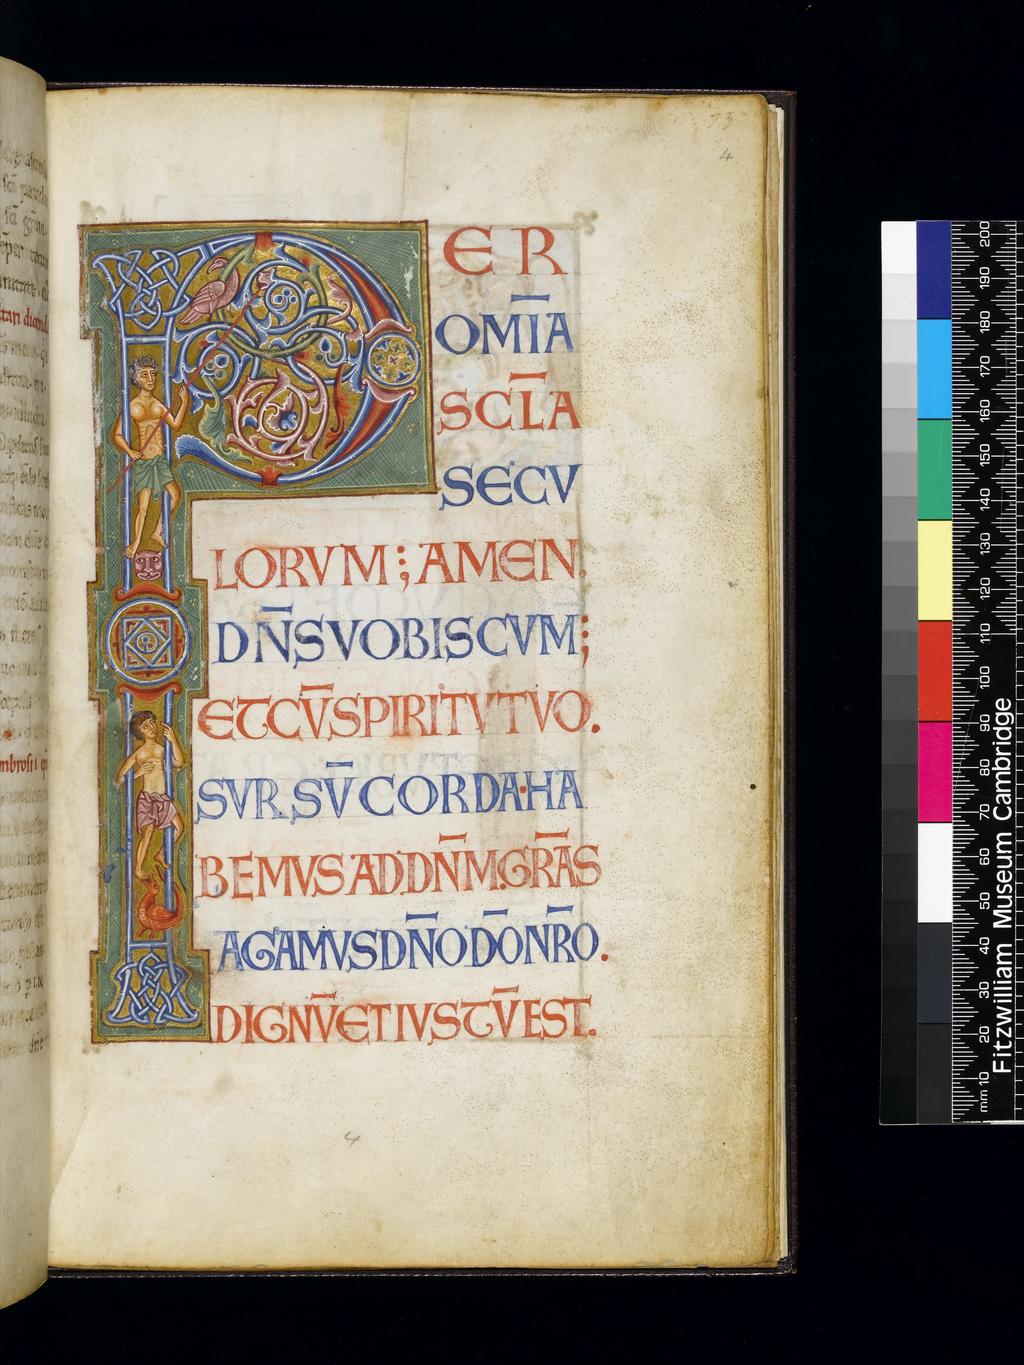 73
4
PER
OM̅I̅A
SCL̅A
SECV
LORVM; AMEN.
DN̅S VOBISCVM;
ET CV̅ SPIRITV TVO.
SVRSV̅ CORDA·HA
BEMVS AD DN̅M.GRA̅S
AGAMVS DN̅O DO̅ NR̅O.
DIGNV̅ ET IVSTV̅ EST.
4
Fitzwilliam Museum Cambridge
mm 10 20 30 40 50 60 70 80 90 100 110 120 130 140 150 160 170 180 190 200